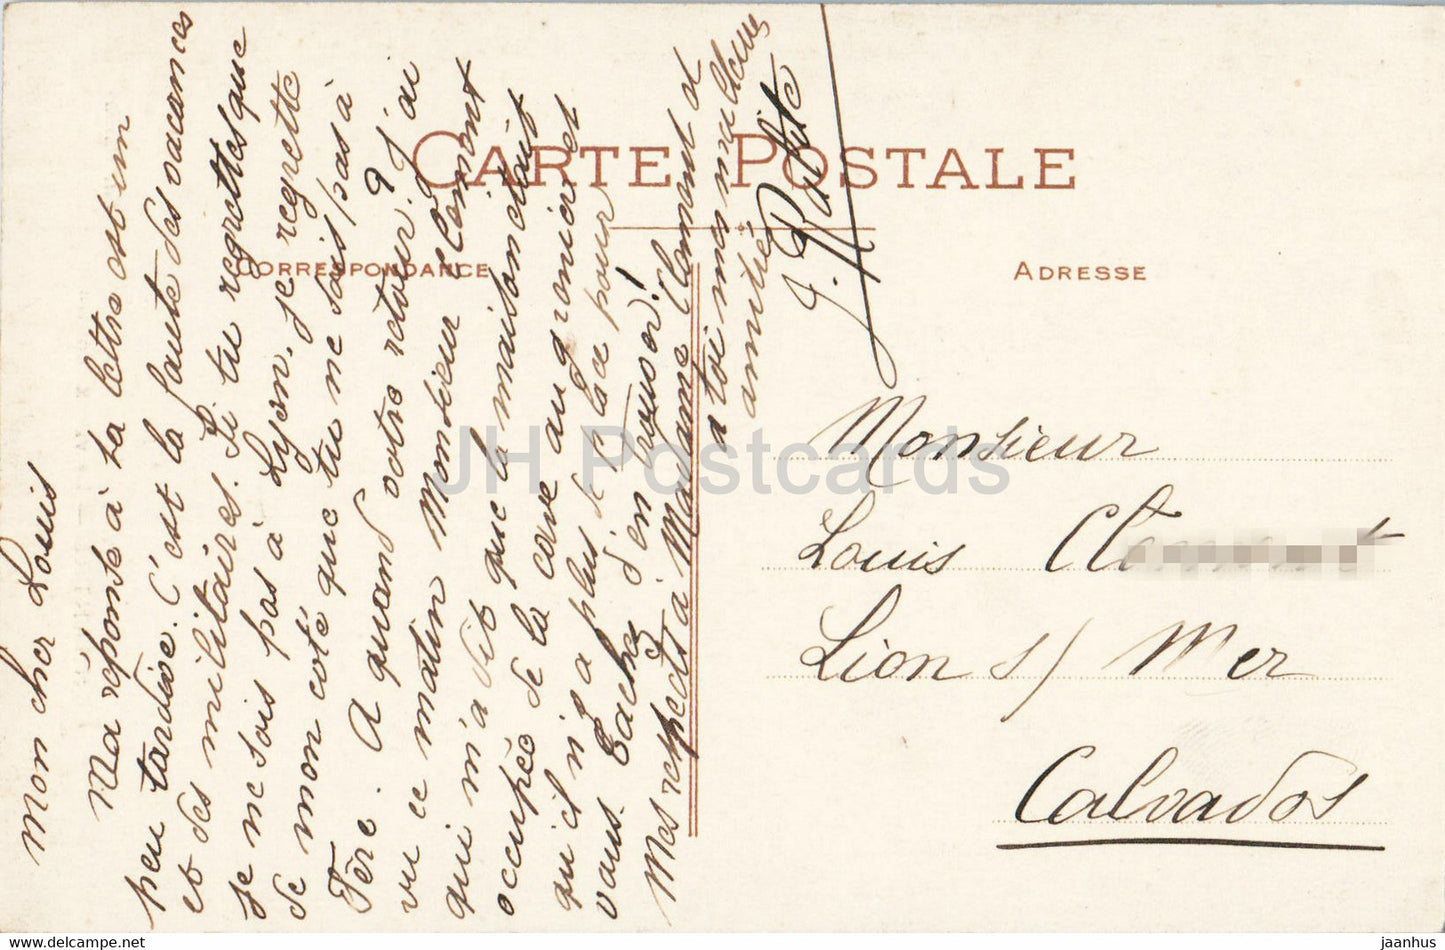 CARTE POSTALE
CORRESPONDANCE
ADRESSE
Mon cher Louis
Ma réponse à ta lettre est un
peu tardive. C'est la faute des vacances
et des militaires. Si tu regrettes que
je ne sois pas à Lyon, je regrette
de mon coté que tu ne sois pas à
Fère. A quand votre retour? J'ai
vu ce matin Monsieur Clement
qui m'a dit que la maison était
occupée de la cave au grenier et
qu'il n'a plus de place pour
vous. Tachez d'en trouver!
Mes respects à Madame Clement et
à toi mes meilleures
amitiés
J. Rabite
Monsieur
Louis
Lion s/ Mer
Calvados
JH Postcards
www.delcampe.net
jaanhus